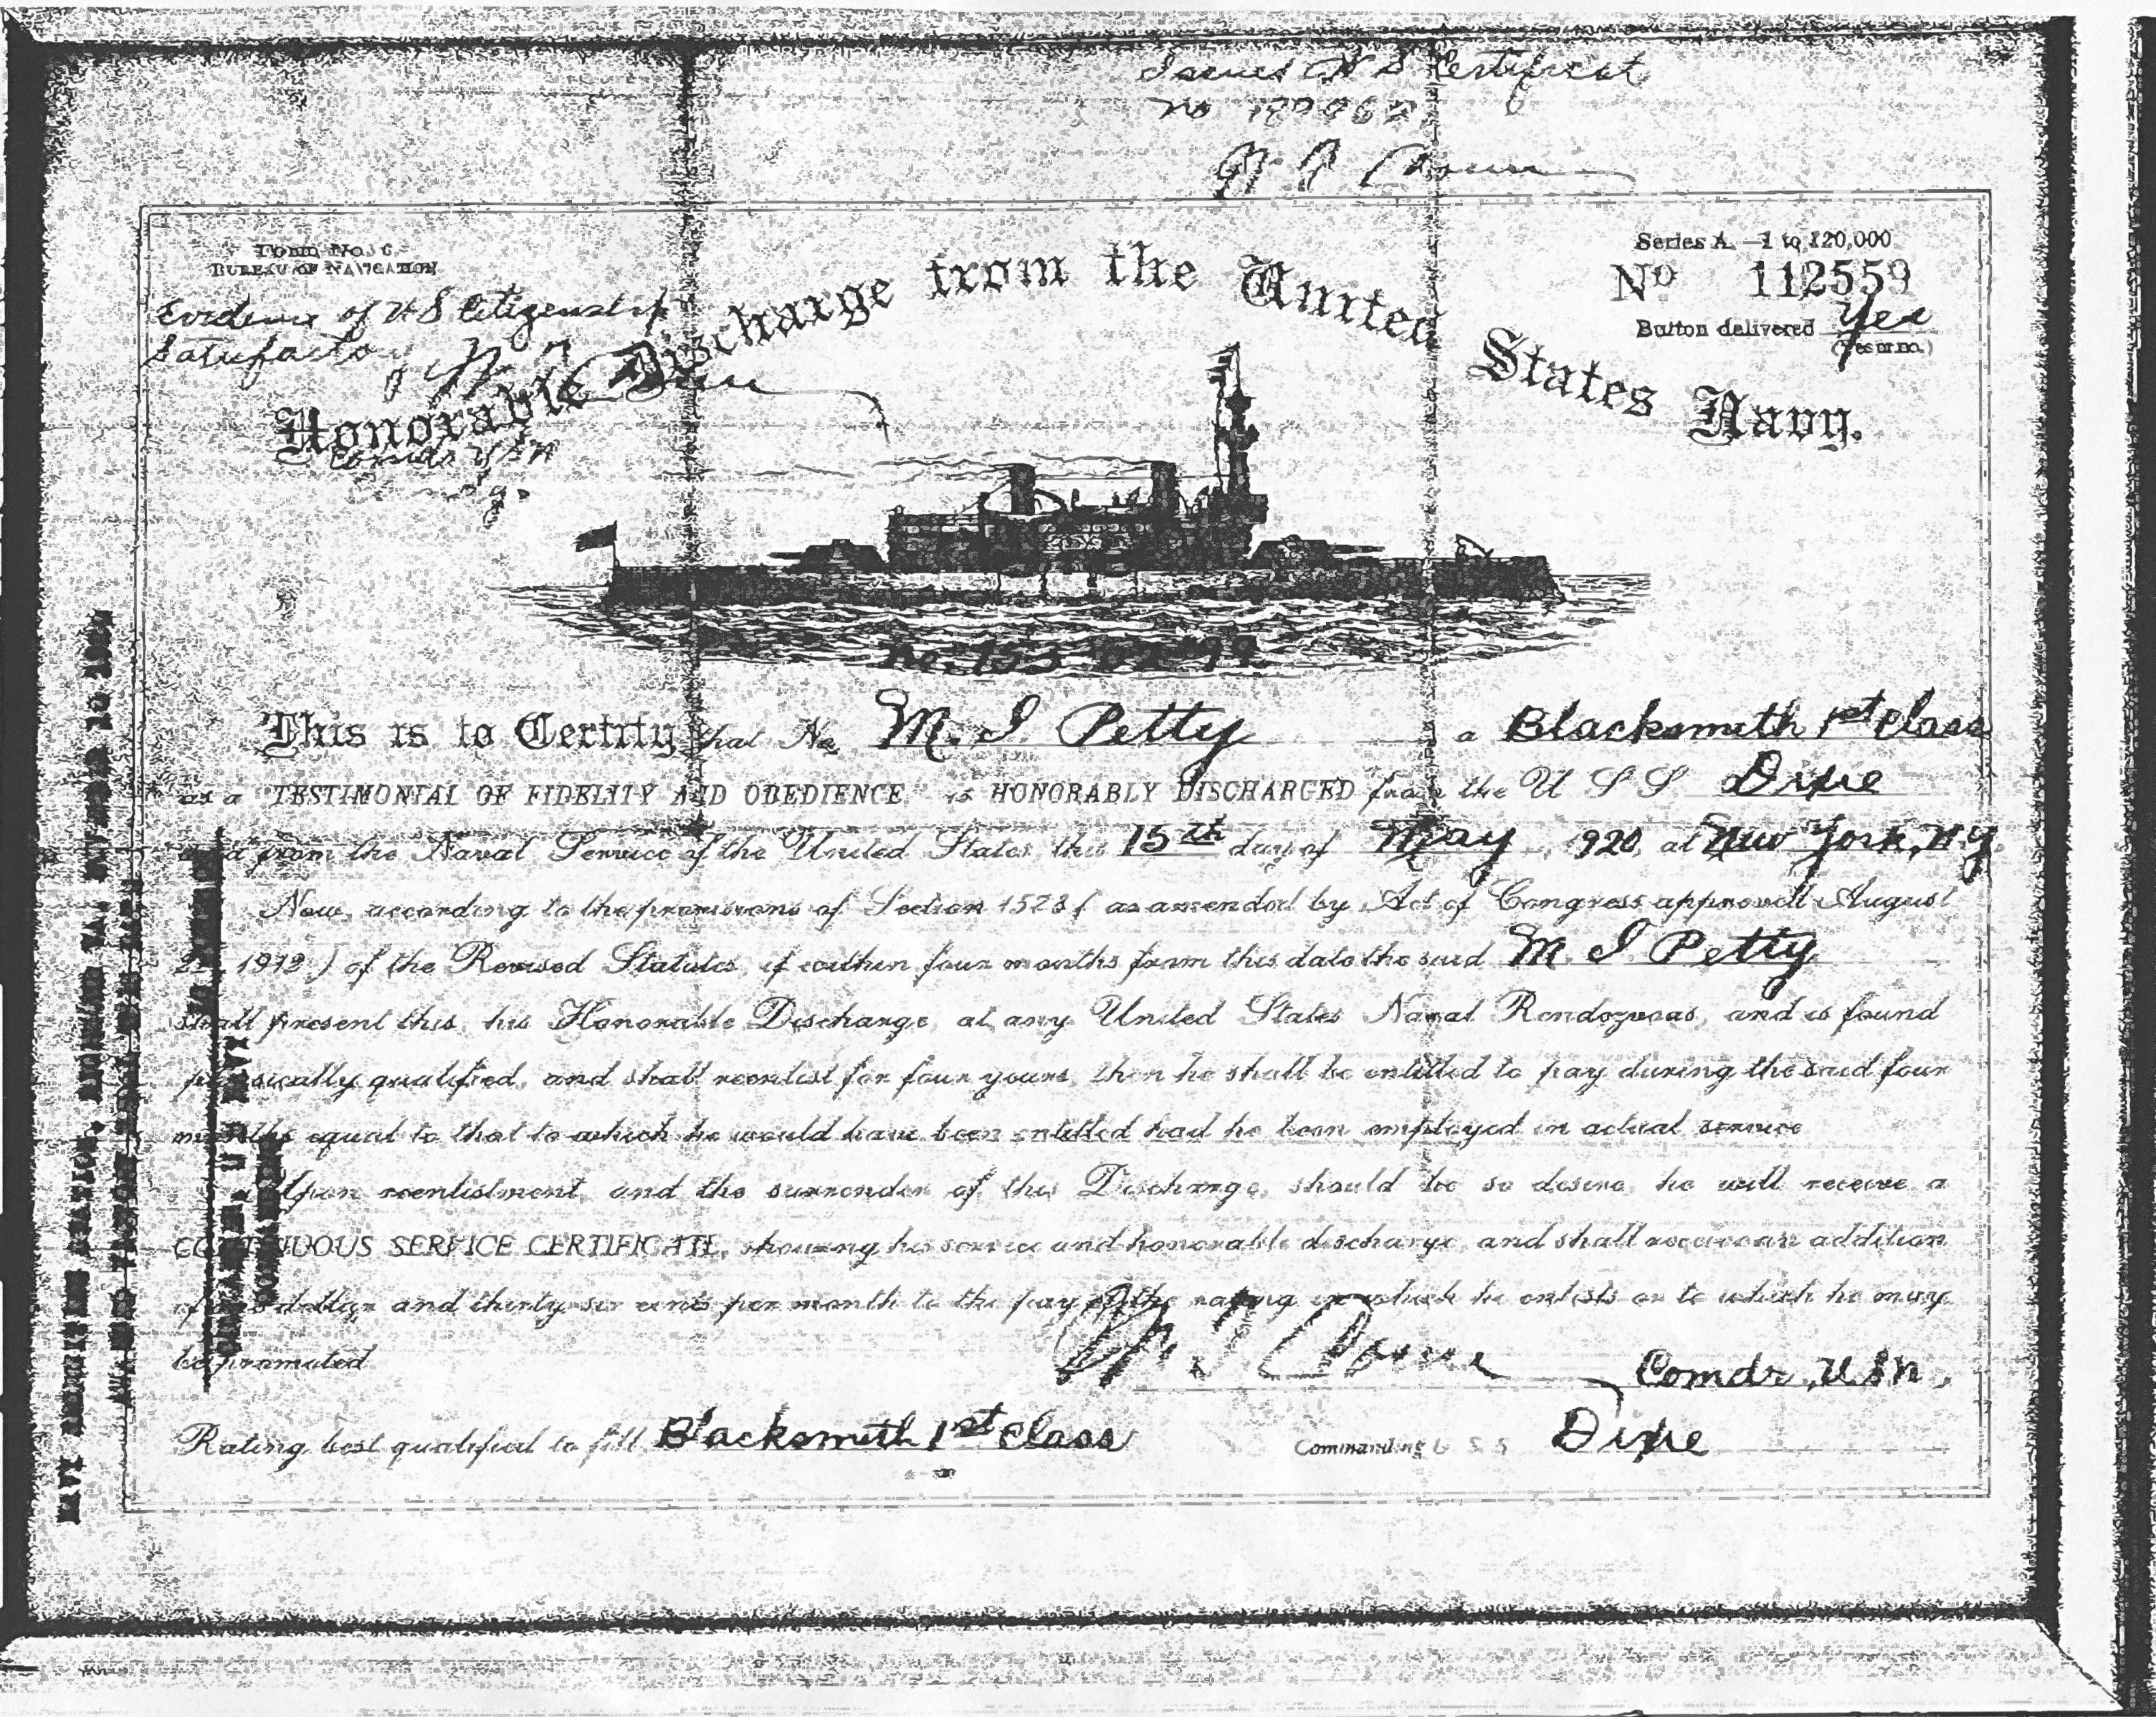 Issued H D Certificate
no
Form No. 6
BUREAU OF NAVIGATION
Series A. —1 to 120,000
No 112559
Button delivered Yes
(Yes or no.)
Evidence of U S Citizenship
Satisfactory
Comdr USN
Honorable Discharge from the United States Navy.
This is to Certify that No. M. I. Petty a Blacksmith 1st Class
as a "TESTIMONIAL OF FIDELITY AND OBEDIENCE" is HONORABLY DISCHARGED from the U S S Dixie
and from the Naval Service of the United States, this 15th day of May, 1920, at New York, N.Y.
Now, according to the provisions of Section 1573 (as amended by Act of Congress approved August
22, 1912) of the Revised Statutes, if within four months from this date the said M. I. Petty
shall present this, his Honorable Discharge, at any United States Naval Rendezvous, and is found
physically qualified, and shall reenlist for four years, then he shall be entitled to pay during the said four
months equal to that to which he would have been entitled had he been employed in actual service
Upon reenlistment, and the surrender of this Discharge, should he so desire, he will receive a
CONTINUOUS SERVICE CERTIFICATE, showing his service and honorable discharge, and shall receive an addition
of one dollar and thirty-six cents per month to the pay of the rating in which he enlists or to which he may
be promoted
Comdr, U.S.N.,
Rating best qualified to fill Blacksmith 1st Class Commanding U S S Dixie